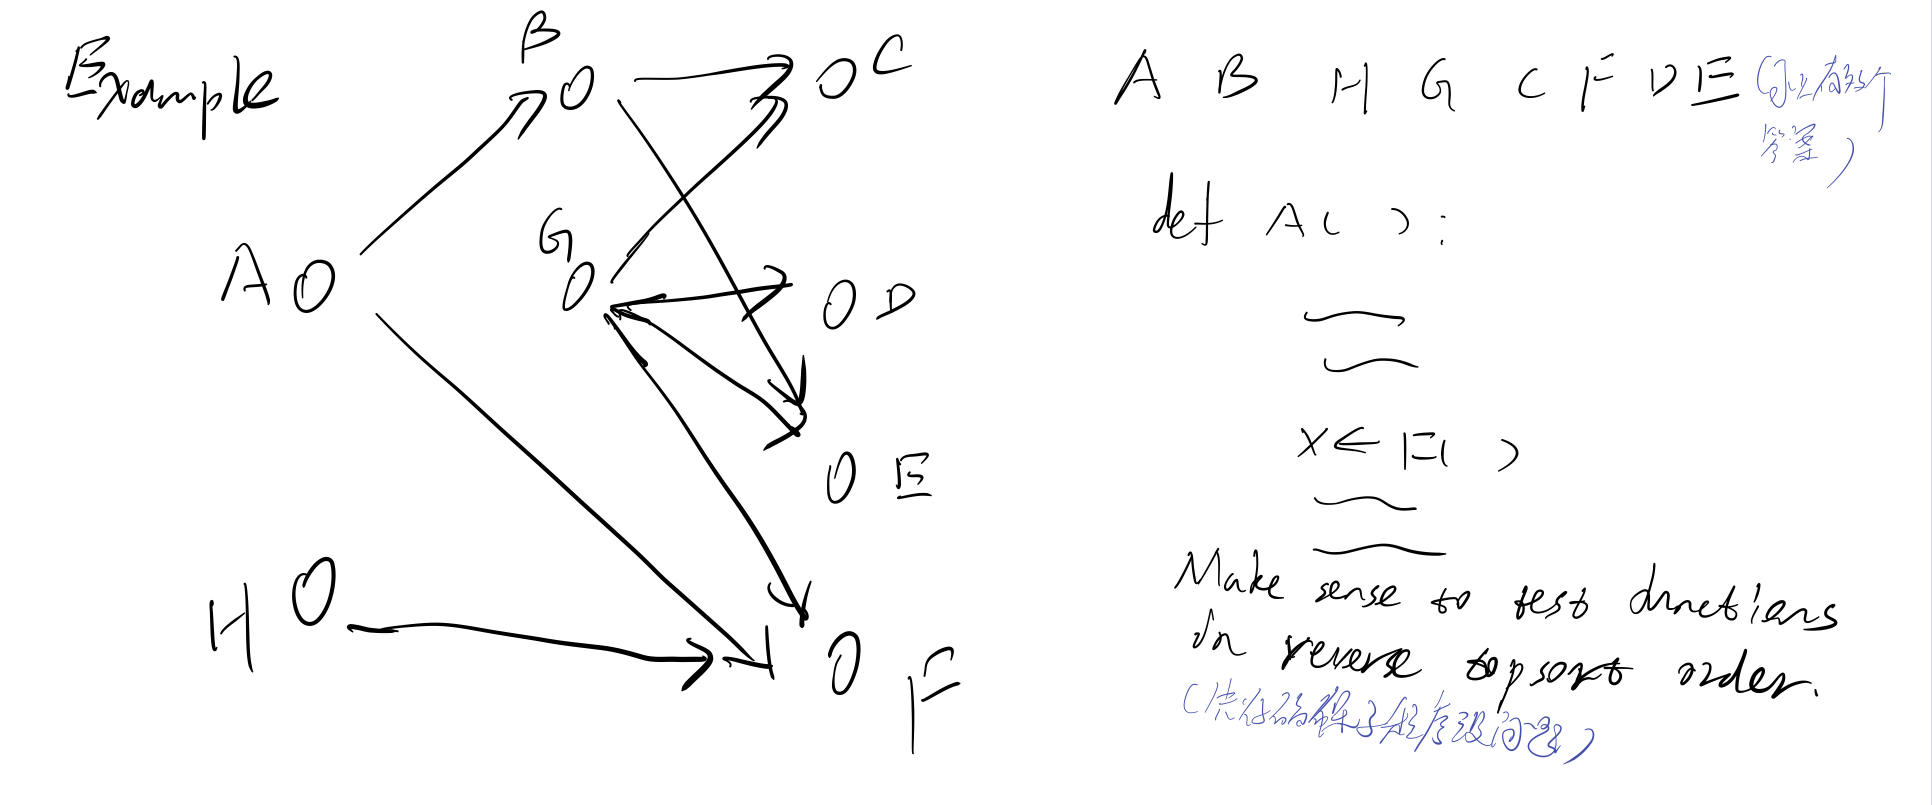 Example
B
C
G
A
D
E
H
F
A B H G C F D E (可以有多个
答案)
def A( ):
x ← F( )
Make sense to test functions
in reverse topsort order.
子程序没问题)